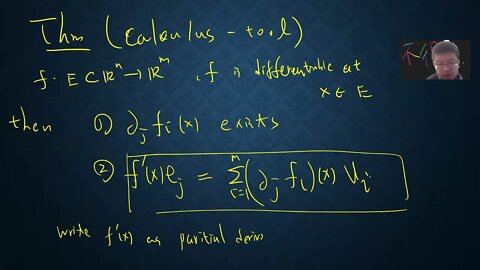 Thm (Calculus - tool)
f: E ⊂ ℝⁿ → ℝᵐ, f is differentiable at
x ∈ E
then ① ∂ⱼfᵢ(x) exists
② f'(x)eⱼ = Σᵢ₌₁ᵐ (∂ⱼfᵢ)(x) uᵢ
write f'(x) as partial deriv